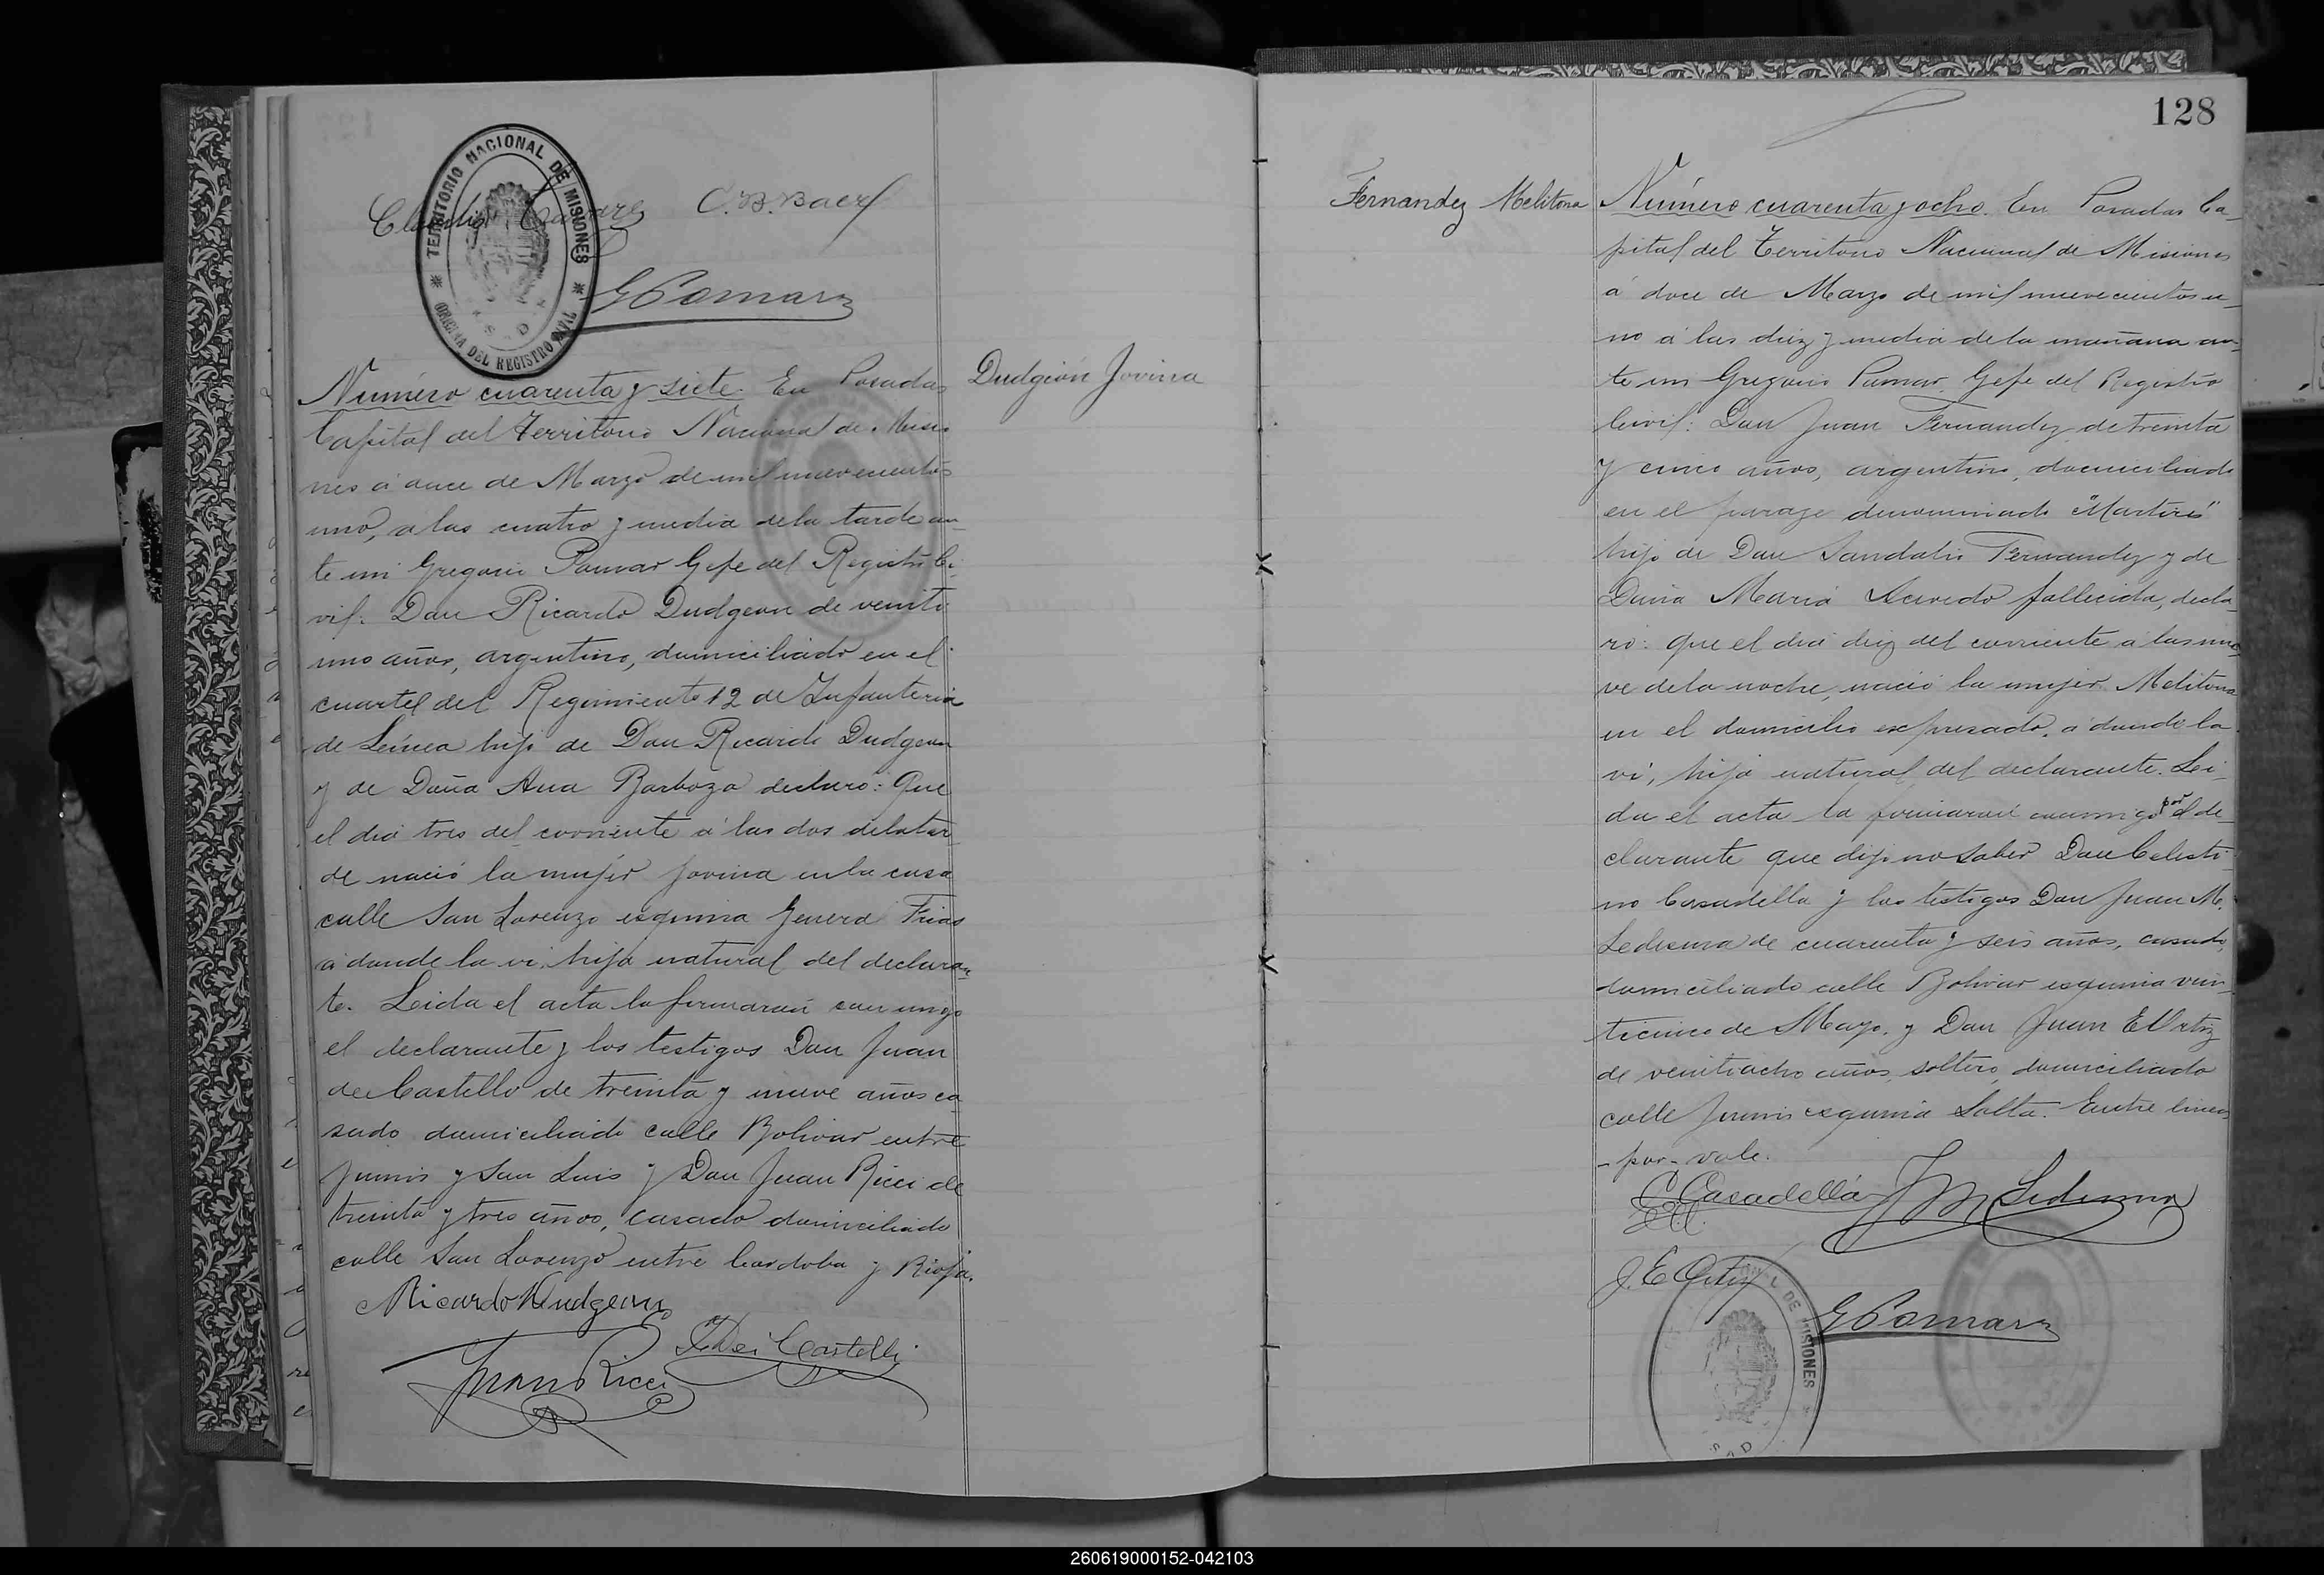 TERRITORIO NACIONAL DE MISIONES
OFICINA DEL REGISTRO CIVIL
C. B. Baez
G Pomar
Número cuarenta y siete. En Posadas
Capital del Territorio Nacional de Misio
nes á once de Marzo de mil nuevecientos
uno, a las cuatro y media de la tarde an
te mi Gregorio Pomar Gefe del Registro Ci-
vil: Don Ricardo Dudgeon de veinti
uno años, argentino, domiciliado en el
cuartel del Regimiento 12 de Infanteria
de Leinea hijo de Don Ricardo Dudgeon
y de Doña Ana Barboza declaró: Que
el dia tres del corriente á las dos de la tar
de nació la mujer Jovina en la casa
calle San Lorenzo esquina General Frias
a donde la vi, hija natural del declaran
te. Leida el acta la firmaran conmigo
el declarante y los testigos Don Juan
dei Castello de treinta y nueve años ca
sado domiciliado calle Bolivar entre
Junin y San Luis y Don Juan Ricci de
treinta y tres años, casado domiciliado
calle San Lorenzo entre Cordoba y Rioja.
Ricardo Dudgeon
J. Dei Castelli
Juan Ricci
Dudgeón Jovina
128
Fernandez Melitona
Número cuarenta y ocho. En Posadas Ca-
pital del Territorio Nacional de Misiones
á doce de Marzo de mil nuevecientos u-
no á las diez y media de la mañana an-
te mi Gregorio Pomar Gefe del Registro
Civil: Don Juan Fernandez de treinta
y cinco años, argentino, domiciliado
en el paraje denominado "Martires"
hijo de Don Sandalio Fernandez y de
Doña Maria Acevedo fallecida, decla-
ró: que el dia diez del corriente a las nue-
ve de la noche, nació la mujer Melitona
en el domicilio expresado, a donde la
vi, hija natural del declarante. Lei-
da el acta la firmaran conmigo por el de-
clarante que dijo no saber Don Celesti-
no Casadella y los testigos Don Juan M.
Ledesma de cuarenta y seis años, casado,
domiciliado calle Bolivar esquina vein-
ticinco de Mayo, y Don Juan E Ortiz
de veintiocho años, soltero, domiciliado
calle Junin esquina Salta. Entre lineas
- por - vale.
C. Casadellá
J M Ledesma
J. E Ortiz
G Pomar
DE MISIONES
260619000152-042103